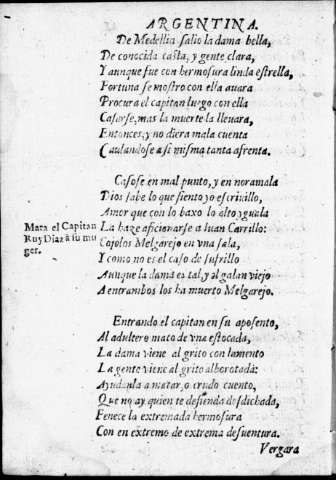 ARGENTINA.
De Medellin salio la dama bella,
De conocida casta, y gente clara,
Y aunque fue con hermosura linda estrella,
Fortuna se mostro con ella auara
Procura el capitan luego con ella
Casarse, mas la muerte la lleuara,
Entonces, y no diera mala cuenta
Causandose a si misma tanta afrenta.
Casose en mal punto, y en noramala
Dios sabe lo que siento yo escriuillo,
Amor que con lo baxo lo alto yguala
La haze aficionarse a Iuan Carrillo:
Cojolos Melgarejo en vna sala,
Y como no es el caso de sufrillo
Aunque la dama es tal, y al galan viejo
A entrambos los ha muerto Melgarejo.
Mata el Capitan
Ruy Diaz à su mu
ger.
Entrando el capitan en su aposento,
Al adultero mato de vna estocada,
La dama viene al grito con lamento
La gente viene al grito alborotada:
Ayudaula a matar, o crudo cuento,
Que no ay quien te defienda desdichada,
Fenece la extremada hermosura
Con en extremo de extrema desuentura.
Vergara